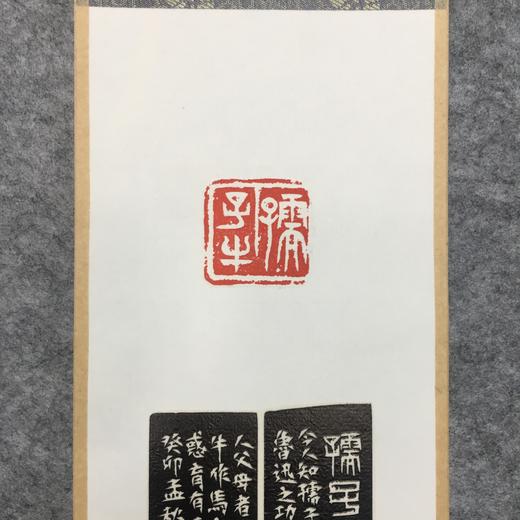 孺
子牛
孺子
今人知孺子
魯迅之功
人父母者
牛作馬
惑育有
癸卯孟秋